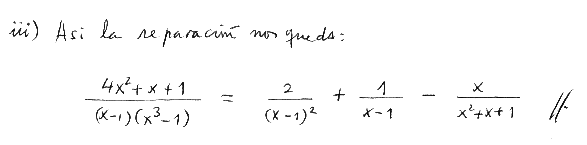 iii) Asi la reparación nos queda:
(4x² + x + 1) / ((x-1)(x³-1)) = 2 / (x-1)² + 1 / (x-1) - x / (x²+x+1) //